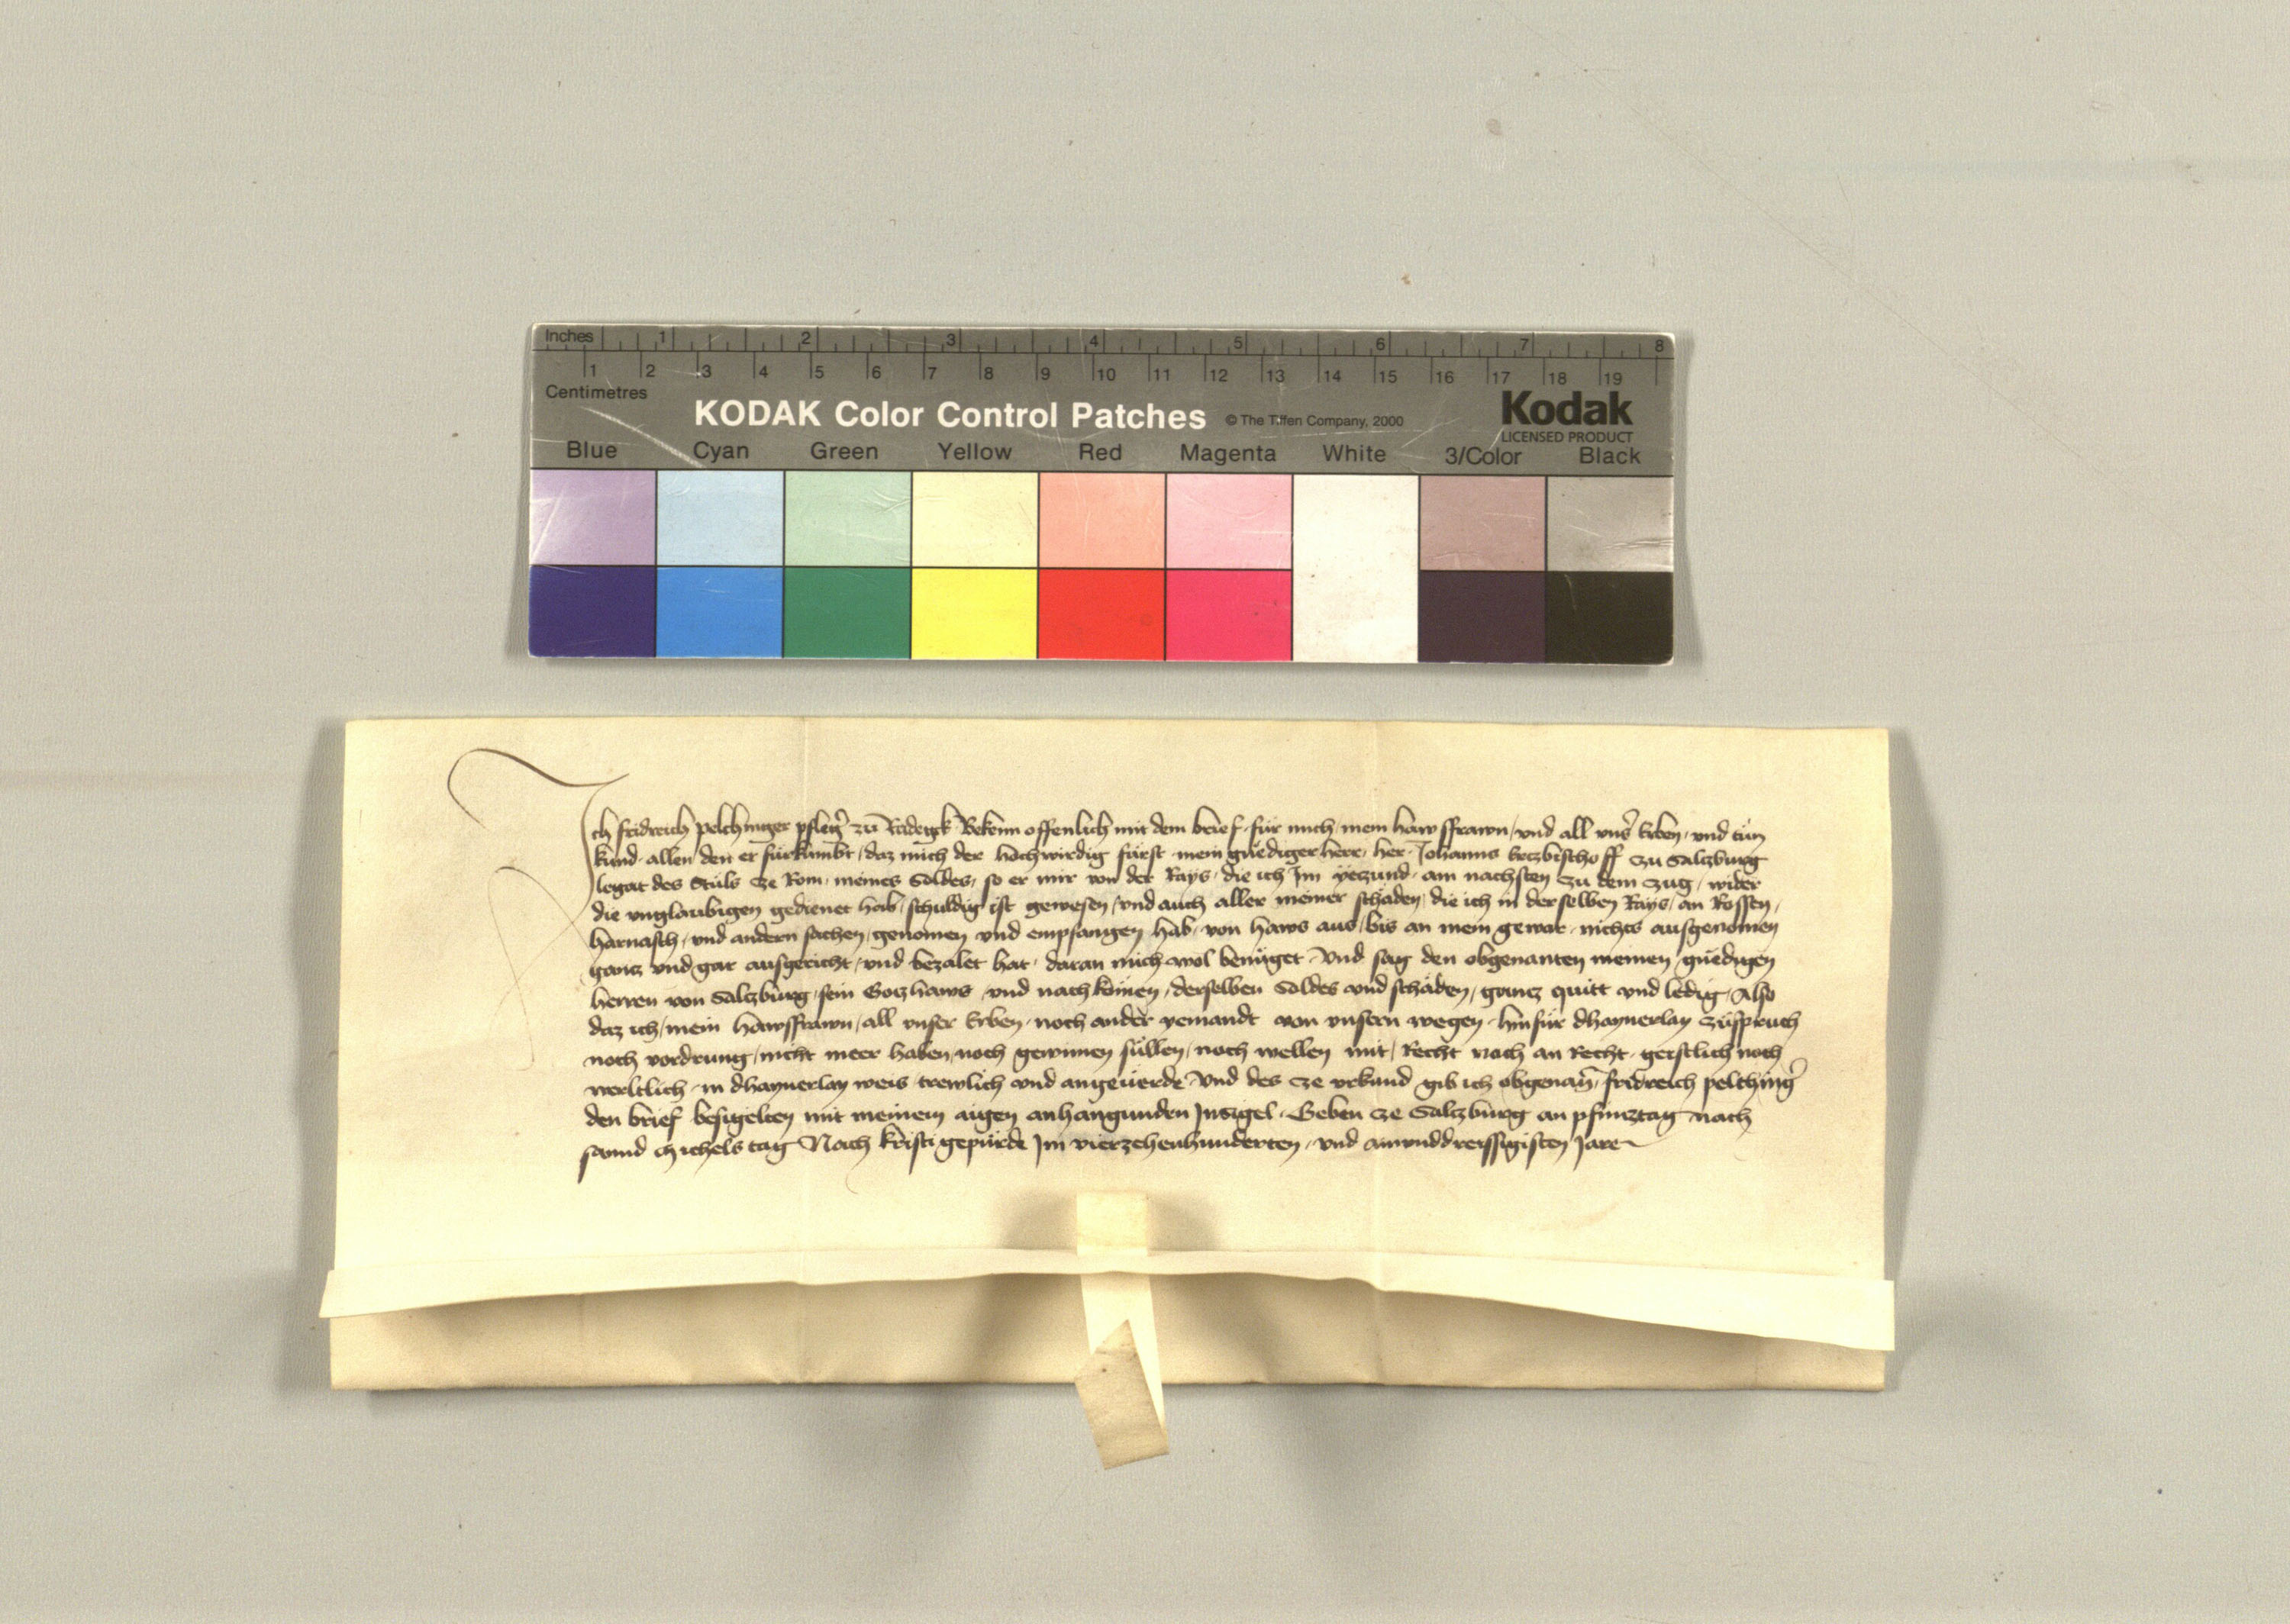 Inches 1 2 3 4 5 6 7 8
1 2 3 4 5 6 7 8 9 10 11 12 13 14 15 16 17 18 19
Centimetres
KODAK Color Control Patches © The Tiffen Company, 2000 Kodak
LICENSED PRODUCT
Blue Cyan Green Yellow Red Magenta White 3/Color Black
Ich fridreich pelchinger pfleg̉ zu Radegk Bekenn offenlich mit dem brief für mich mein hawsffrawn / vnd all vns̉ Erben / vnd tun
kund allen den er fürkumbt / daz mich der hochwirdig fürst mein gnediger herr her Johanns Ertzbischoff zu Saltzburg
legat des Stuls ze Rom meines Soldes / so er mir von der Rays die ich Im yetzund am nachsten zu dem Zug / wider
die vnglaubigen gedienet hab / schuldig ist gewesen / vnd auch aller meiner schäden die ich in derselben Rays / an Rossen /
harnasch / vnd andern sachen / genomen vnd empfangen hab von haws aus / bis an mein gewar nichts ausgenomen
gantz vnd gar ausgericht / vnd bezalet hat daran mich wol benüget Vnd sag den obgenanten meinen gnedigen
herren von Saltzburg / sein Gotzhaws vnd nachkomen / derselben Soldes vnd schäden / gantz quitt vnd ledig / Also
daz ich / mein hawsffrawn / all vnser Erben noch ander yemandt von vnsern wegen hinfür dhaynerlay zuspruch
noch vordrung / nicht meer haben / noch gewinnen süllen / noch wellen mit Recht noch an Recht geistlich noch
werltlich in dhaynerlay weis trewlich vnd angeuerde Vnd des ze vrkund gib ich obgenan̄ fridreich pelching̉
den brief besigelten mit meinem aigen anhangunden Insigel Geben ze Saltzburg an pfintztag nach
sannd Michels tag Nach kristi gepürde Im vierzehenhunderten / vnd ainvnddreissigisten Jare